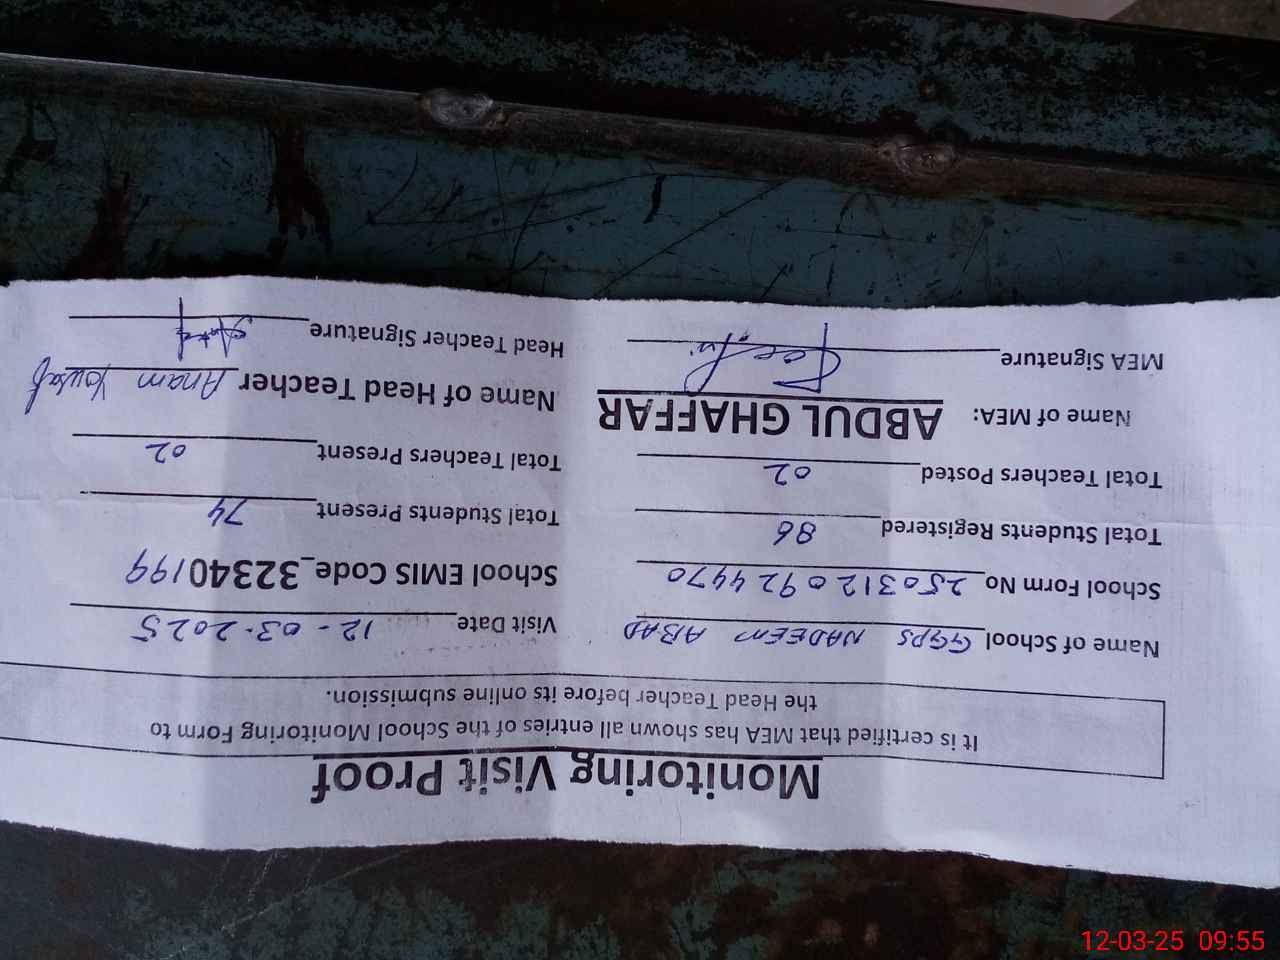 Monitoring Visit Proof
It is certified that MEA has shown all entries of the School Monitoring Form to
the Head Teacher before its online submission.
Name of School GGPS NADEEM ABAD Visit Date 12-03-2025
School Form No 2503120924470 School EMIS Code_32340199
Total Students Registered 86 Total Students Present 74
Total Teachers Posted 02 Total Teachers Present 02
Name of MEA: ABDUL GHAFFAR Name of Head Teacher Anam Yousaf
MEA Signature Head Teacher Signature
12-03-25 09:55